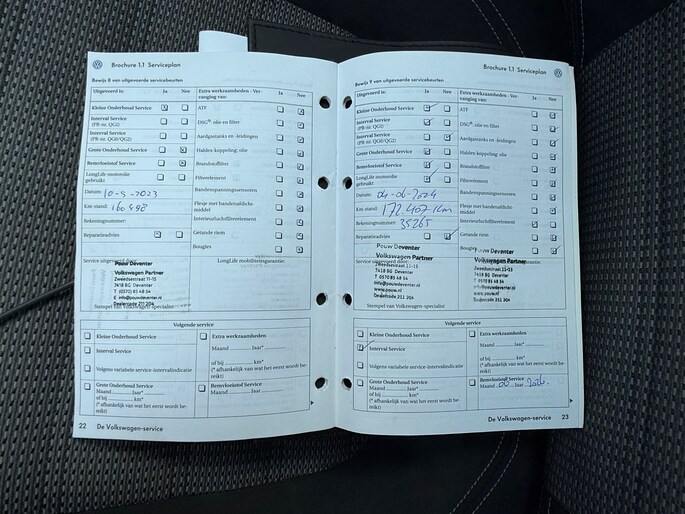 Brochure 1.1 Serviceplan
Bewijs 8 van uitgevoerde servicebeurten
Uitgevoerd is: Ja Nee
Extra werkzaamheden - Vervanging van: Ja Nee
Kleine Onderhoud Service
Interval Service
(PR-nr. QGI)
Interval Service
(PR-nr. QG0/QG2)
Grote Onderhoud Service
Remvloeistof Service
LongLife motorolie
gebruikt
Datum: 10-5-2023
Km-stand: 160.498
Rekeningnummer:
Reparatieadvies
ATF
DSG®: olie en filter
Aardgastanks en -leidingen
Haldex-koppeling: olie
Brandstoffilter
Bandenspanningssensoren
Flesje met bandenafdichtmiddel
Interieurluchtfilterelement
Getande riem
Bougies
Service uitgevoerd door:
LongLife mobiliteitsgarantie:
Pouw Deventer
Volkswagen Partner
Zweedsestraat 11-15
7418 BG Deventer
T (0570) 85 48 54
E info@pouwdeventer.nl
www.pouwdeventer.nl
Dealercode 211 204
Stempel van Volkswagen-specialist
Volgende service
Kleine Onderhoud Service
Interval Service
Volgens variabele service-intervalindicatie
Grote Onderhoud Service
Maand Jaar*
of bij km*
(* afhankelijk van wat het eerst wordt bereikt)
Extra werkzaamheden:
Maand Jaar*
of bij km*
(* afhankelijk van wat het eerst wordt bereikt)
Remvloeistof Service
Maand Jaar
22 De Volkswagen-service
Brochure 1.1 Serviceplan
Bewijs 9 van uitgevoerde servicebeurten
Uitgevoerd is: Ja Nee
Extra werkzaamheden - Vervanging van: Ja Nee
Kleine Onderhoud Service
Interval Service
(PR-nr. QGI)
Interval Service
(PR-nr. QG0/QG2)
Grote Onderhoud Service
Remvloeistof Service
LongLife motorolie
gebruikt
Datum: 04-06-2024
Km-stand: 172.407 km
Rekeningnummer: 35265
Reparatieadvies
ATF
DSG®: olie en filter
Aardgastanks en -leidingen
Haldex-koppeling: olie
Brandstoffilter
Filterelement
Bandenspanningssensoren
Flesje met bandenafdichtmiddel
Interieurluchtfilterelement
Getande riem
Bougies
Service uitgevoerd door:
Pouw Deventer
Volkswagen Partner
Zweedsestraat 11-15
7418 BG Deventer
T 0570 85 48 54
info@pouw.nl
www.pouw.nl
Dealercode 211 204
Stempel van Volkswagen-specialist
Volgende service
Kleine Onderhoud Service
Interval Service
Volgens variabele service-intervalindicatie
Grote Onderhoud Service
Maand Jaar*
of bij km*
(* afhankelijk van wat het eerst wordt bereikt)
Extra werkzaamheden:
Maand Jaar*
of bij km*
(* afhankelijk van wat het eerst wordt bereikt)
Remvloeistof Service
Maand 06 Jaar 2026.
De Volkswagen-service 23